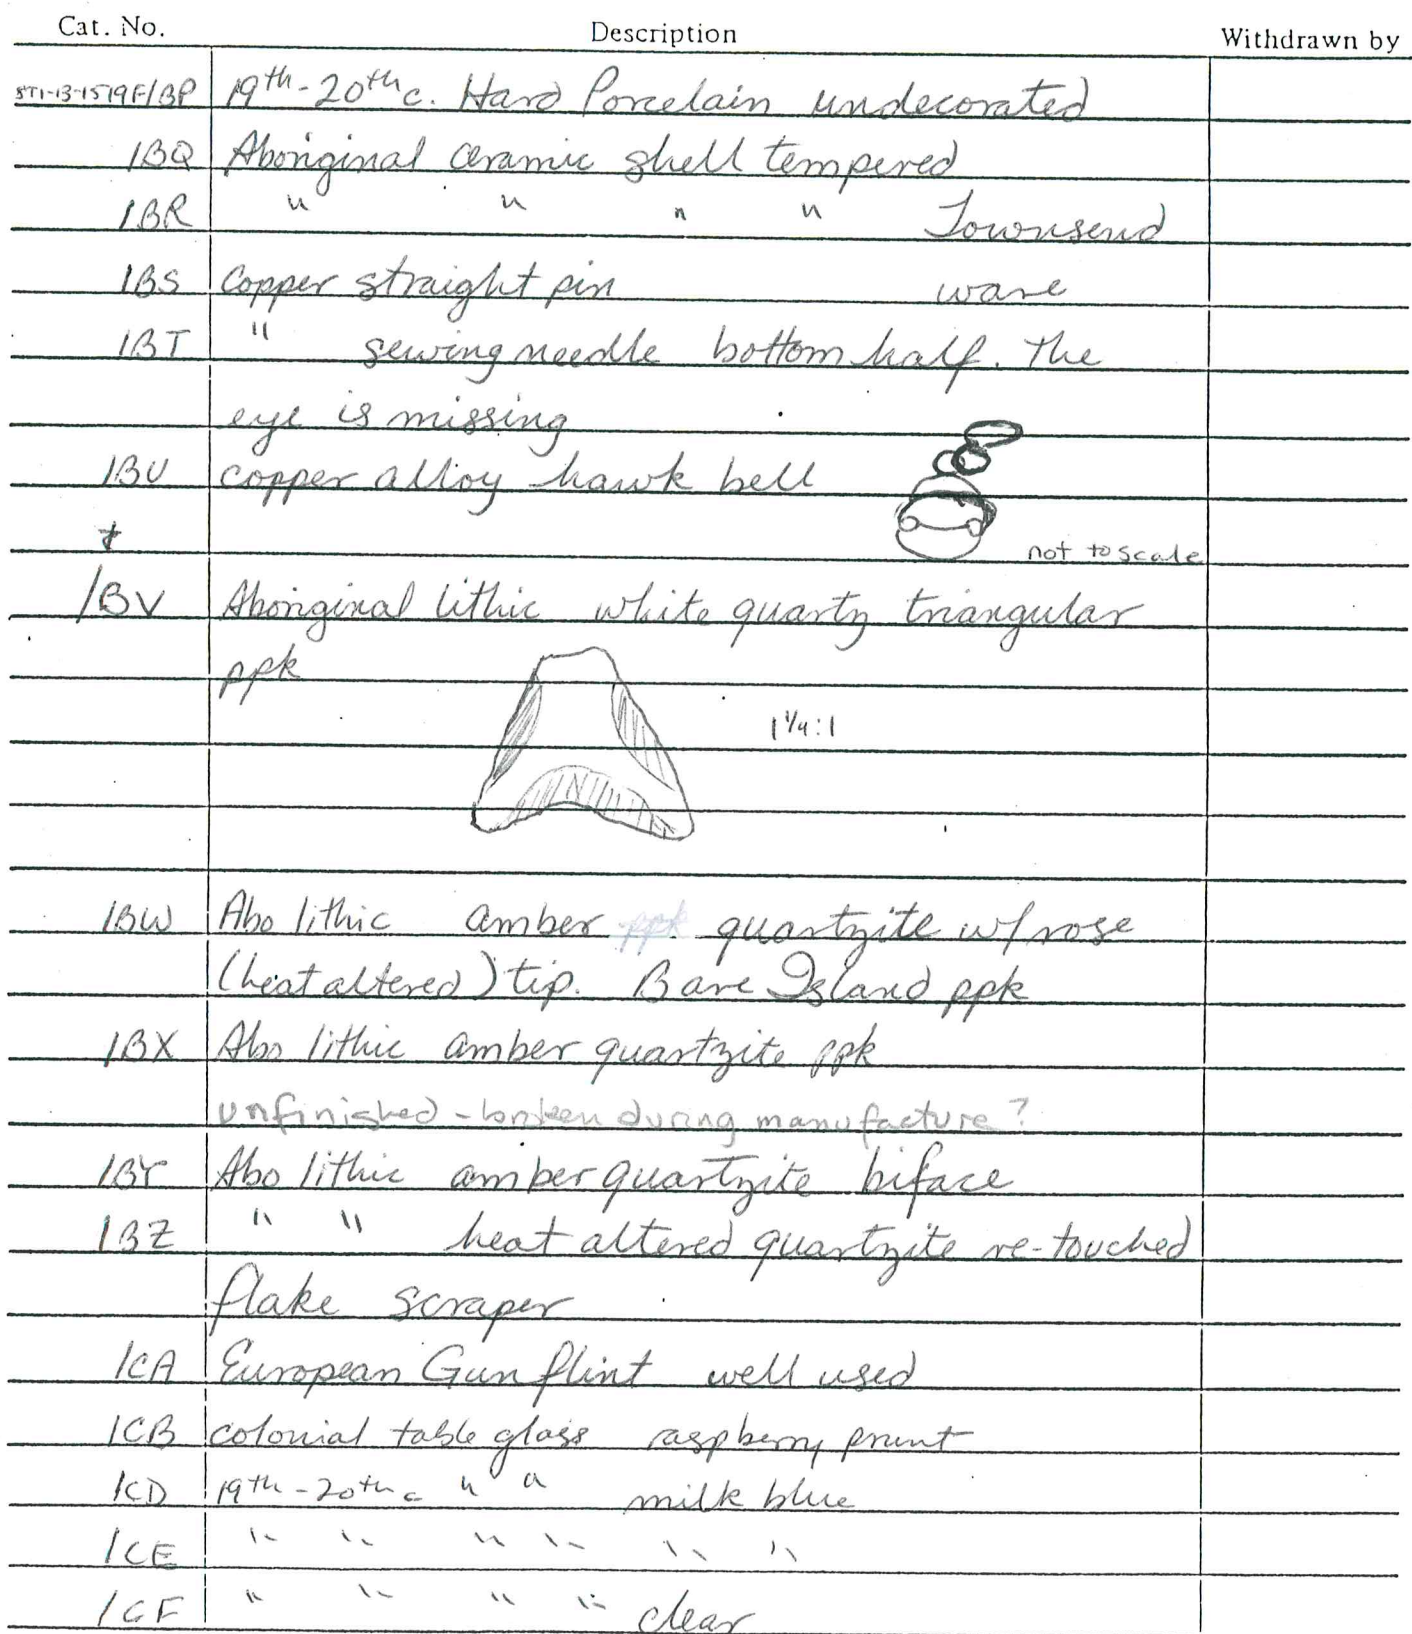 Cat. No. Description Withdrawn by
ST1-13-1579F/BP 19th-20th c. Hard Porcelain undecorated
/BQ Aboriginal ceramic shell tempered
/BR " " " " Townsend
/BS Copper straight pin ware
/BT " sewing needle bottom half. The
eye is missing
/BU copper alloy hawk bell
not to scale
/BV Aboriginal lithic white quartz triangular
ppk
1 1/4:1
/BW Abo lithic amber ppk quartzite w/ rose
(heat altered) tip. Bare Island ppk
/BX Abo lithic amber quartzite ppk
unfinished - broken during manufacture?
/BY Abo lithic amber quartzite biface
/BZ " " heat altered quartzite re-touched
flake scraper
/CA European Gun flint well used
/CB colonial table glass raspberry prunt
/CD 19th-20th c " " milk blue
/CE " " " " " "
/CF " " " " clear